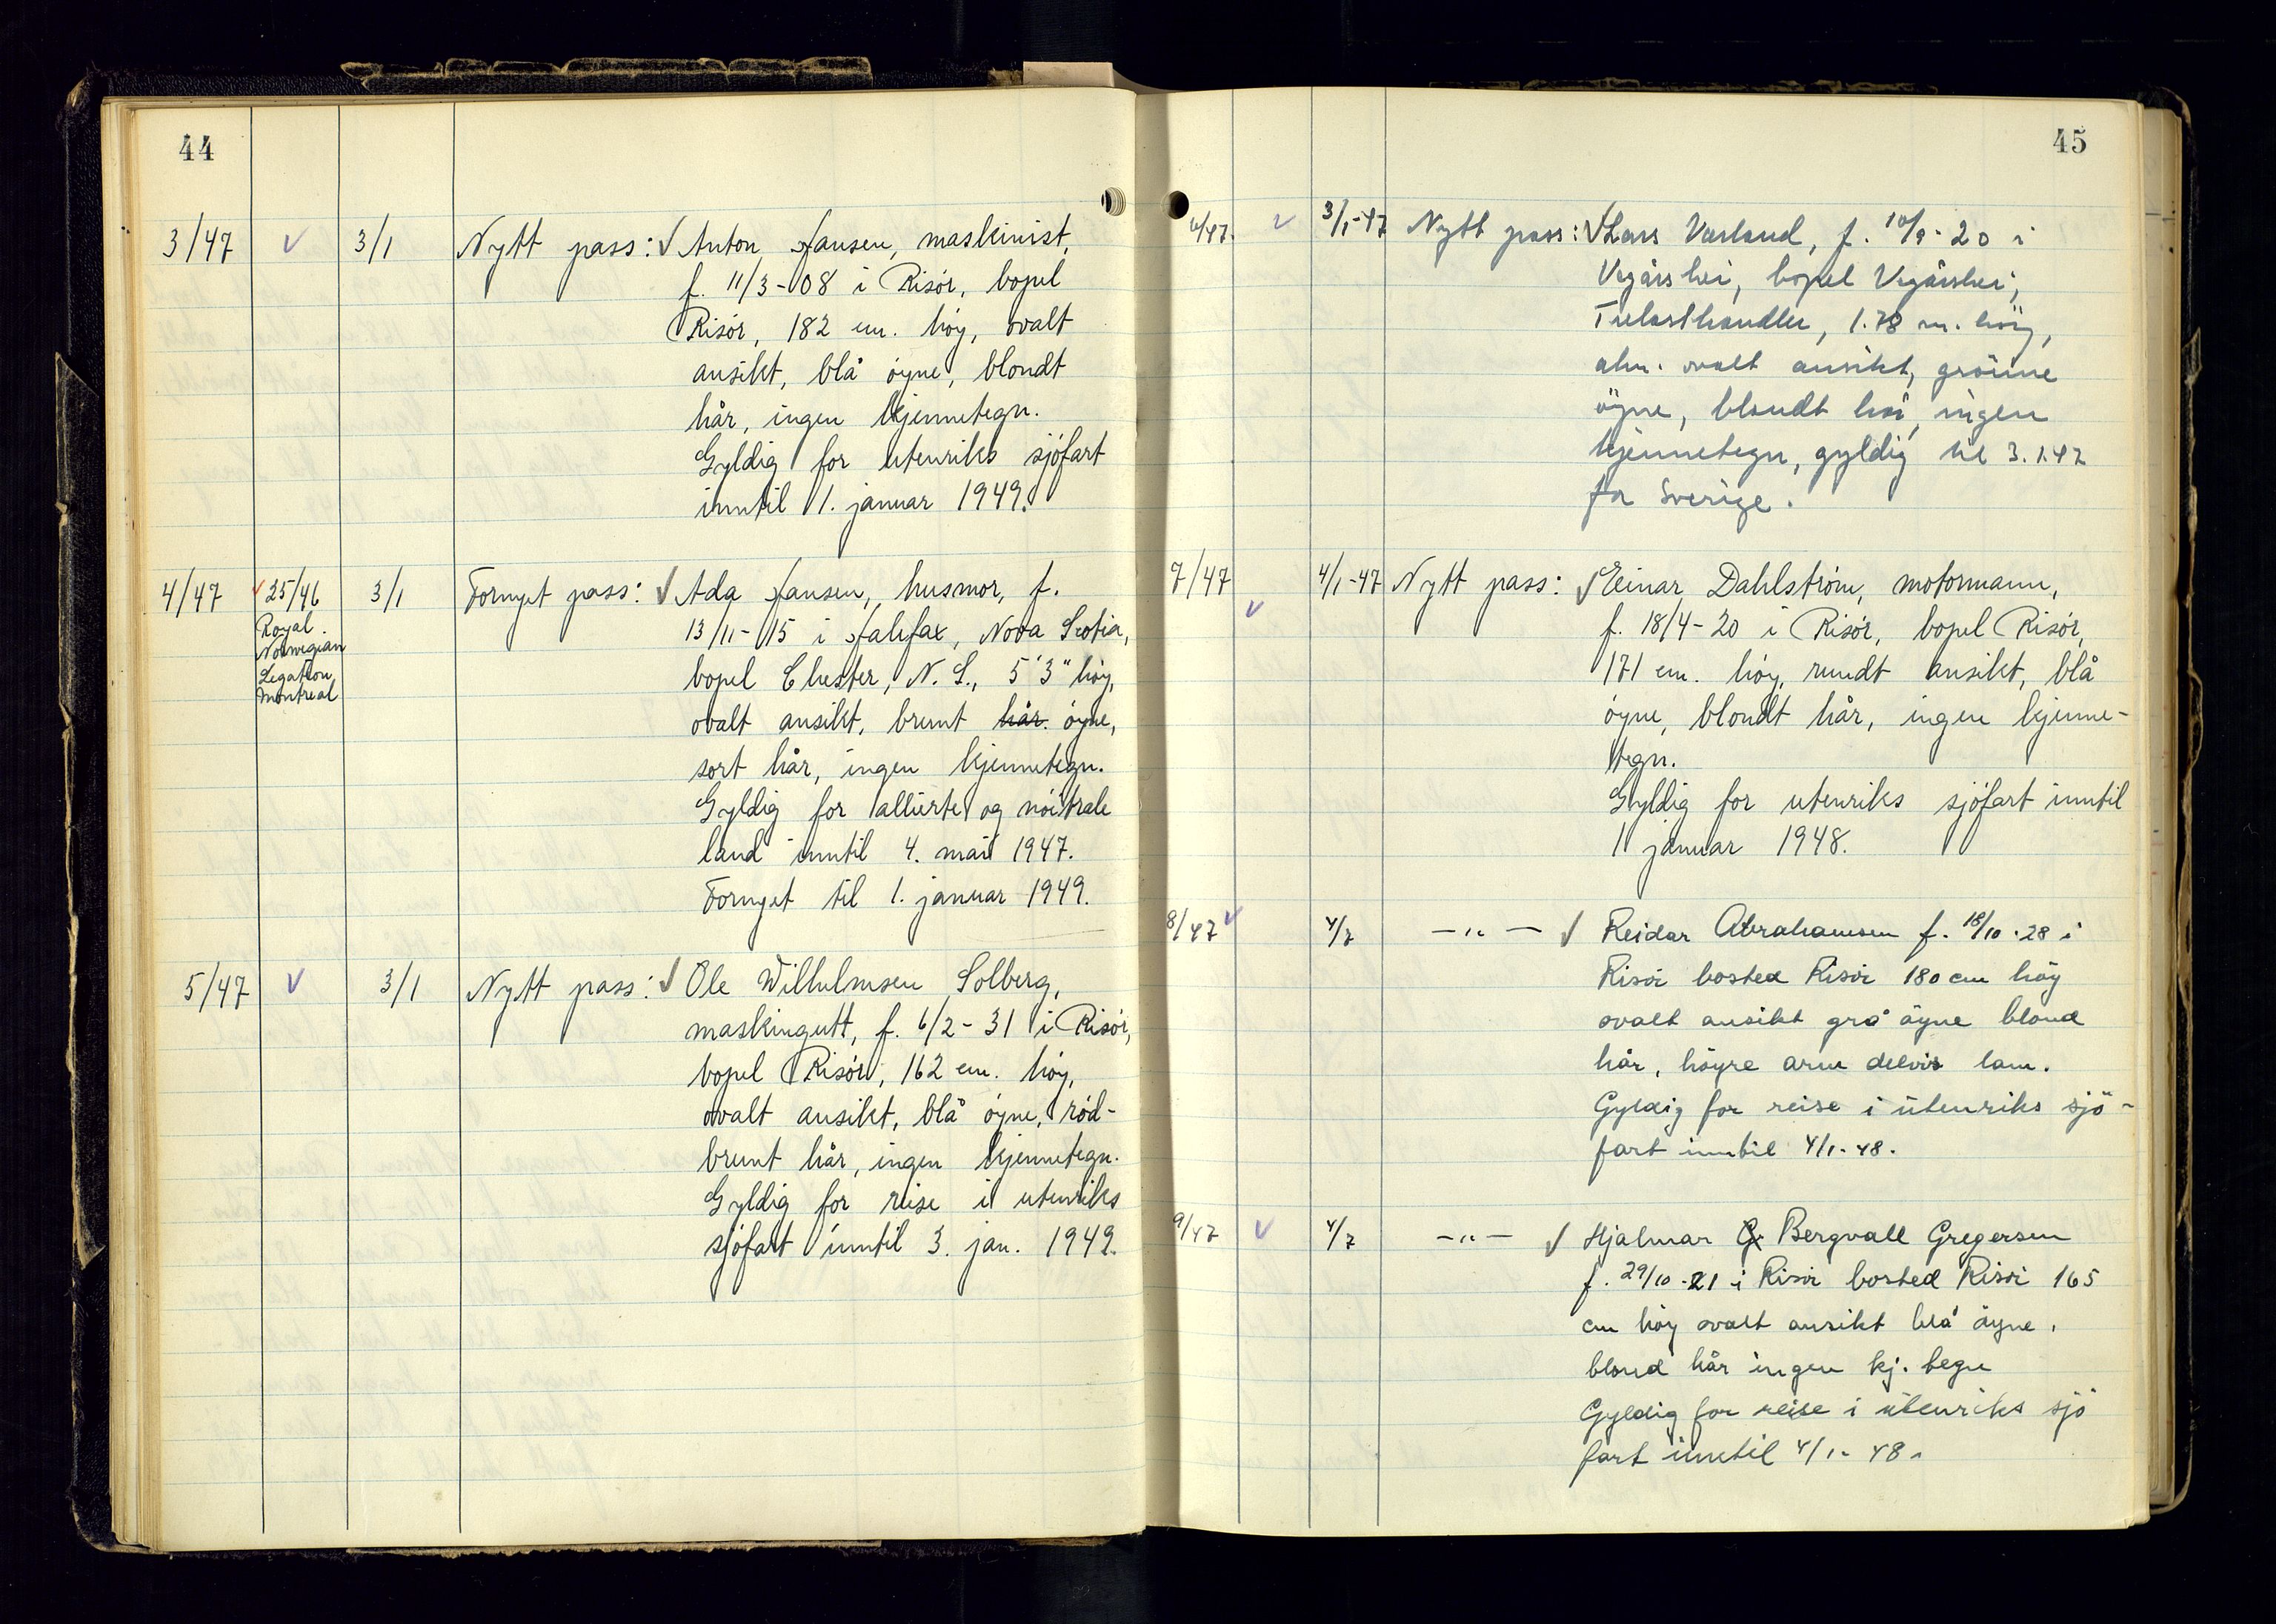 44
3/47 3/1 Nytt pass: Anton Hansen, maskinist,
f. 11/3-08 i Risór, bopel
Risór, 182 cm. hóy, ovalt
ansikt, blå óyne, blondt
hår, ingen kjennetegn.
Gyldig for utenriks sjófart
inntil 1. januar 1949.
4/47 25/46 3/1 Fornyet pass: Ada Hansen, husmor, f.
Royal
Norwegian
Legation,
Montreal
13/11-15 i Halifax, Nova Scotia,
bopel Chester, N. S., 5'3" hóy,
ovalt ansikt, brunt hår óyne,
sort hår, ingen kjennetegn.
Gyldig for allierte og nóitrale
land inntil 4. mai 1947.
Fornyet til 1. januar 1949.
5/47 3/1 Nytt pass: Ole Wilhelmsen Solberg,
maskingutt, f. 6/2-31 i Risór,
bopel Risór, 162 cm. hóy,
ovalt ansikt, blå óyne, ród-
brunt hår, ingen kjennetegn.
Gyldig for reise i utenriks
sjófart inntil 3. jan. 1949.
45
6/47. 3/1-47 Nytt pass: Lars Varland, f. 10/9-20 i
Vegårshei, bopel Vegårshei,
Trelasthandler, 1.78 m. höy,
alm. ovalt ansikt, grönne
öyne, blondt hår, ingen
kjennetegn, gyldig til 3.1.47
for Sverige.
7/47 4/1-47 Nytt pass: Einar Dahlstróm, motormann,
f. 18/4-20 i Risór, bopel Risór,
171 cm. hóy, rundt ansikt, blå
óyne, blondt hår, ingen kjenne-
tegn.
Gyldig for utenriks sjófart inntil
1 januar 1948.
8/47 4/7 -"- Reidar Abrahamsen f. 18/10-28 i
Risör bosted Risör 180 cm höy
ovalt ansikt grå öyne blond
hår, höyre arm delvis lam.
Gyldig for reise i utenriks sjö-
fart inntil 4/1-48.
9/47 4/7 -"- Hjalmar G Bergvall Gregersen
f. 29/10-21 i Risör bosted Risör 165
cm höy ovalt ansikt blå öyne,
blond hår ingen kj. tegn
Gyldig for reise i utenriks sjö
fart inntil 4/1-48.